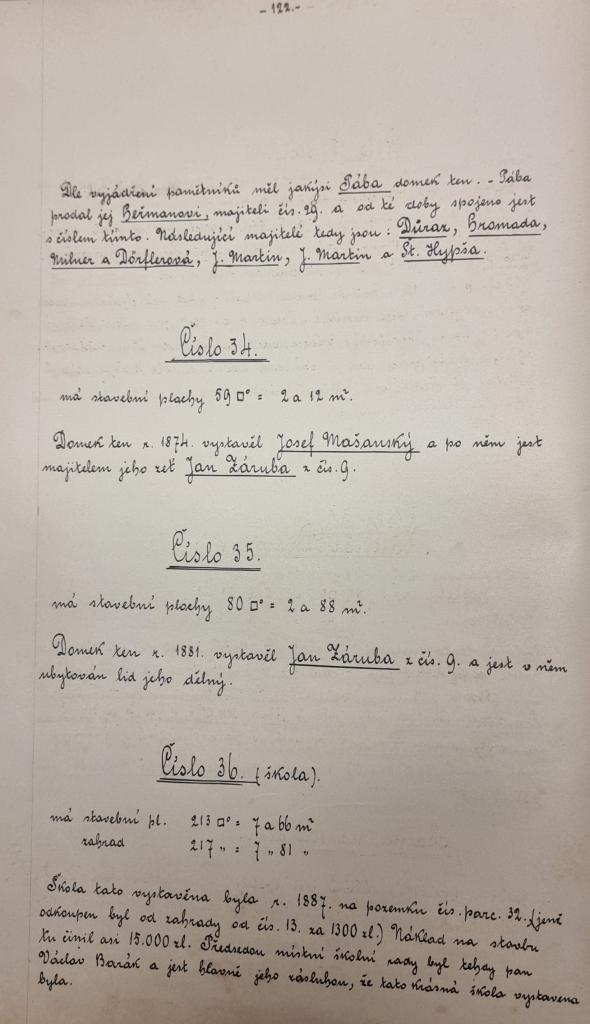 - 122. -
Dle vyjádření pamětníků měl jakýsi Pába domek ten. - Pába
prodal jej Beřmanovi, majiteli čís. 29. a od té doby spojeno jest
s číslem tímto. Následující majitelé tedy jsou: Důraz, Hromada,
Milner a Dörflerová, J. Martin, J. Martin a Št. Hypša.
Číslo 34.
má stavební plochy 59 □° = 2 a 12 m².
Domek ten r. 1874. vystavěl Josef Mašanský a po něm jest
majitelem jeho zeť Jan Záruba z čís. 9.
Číslo 35.
má stavební plochy 80 □° = 2 a 88 m².
Domek ten r. 1881. vystavěl Jan Záruba z čís. 9. a jest v něm
ubytován lid jeho dělný.
Číslo 36. (škola).
má stavební pl. 213 □° = 7 a 66 m²
zahrad 217 „ = 7 „ 81 „
Škola tato vystavěna byla r. 1887. na pozemku čís. parc. 32. (jenž
odkoupen byl od zahrady od čís. 13. za 1300 zl.) Náklad na stavbu
tu činil asi 15.000 zl. Předsedou místní školní rady byl tehdy pan
Václav Barák a jest hlavně jeho zásluhou, že tato krásná škola vystavena
byla.